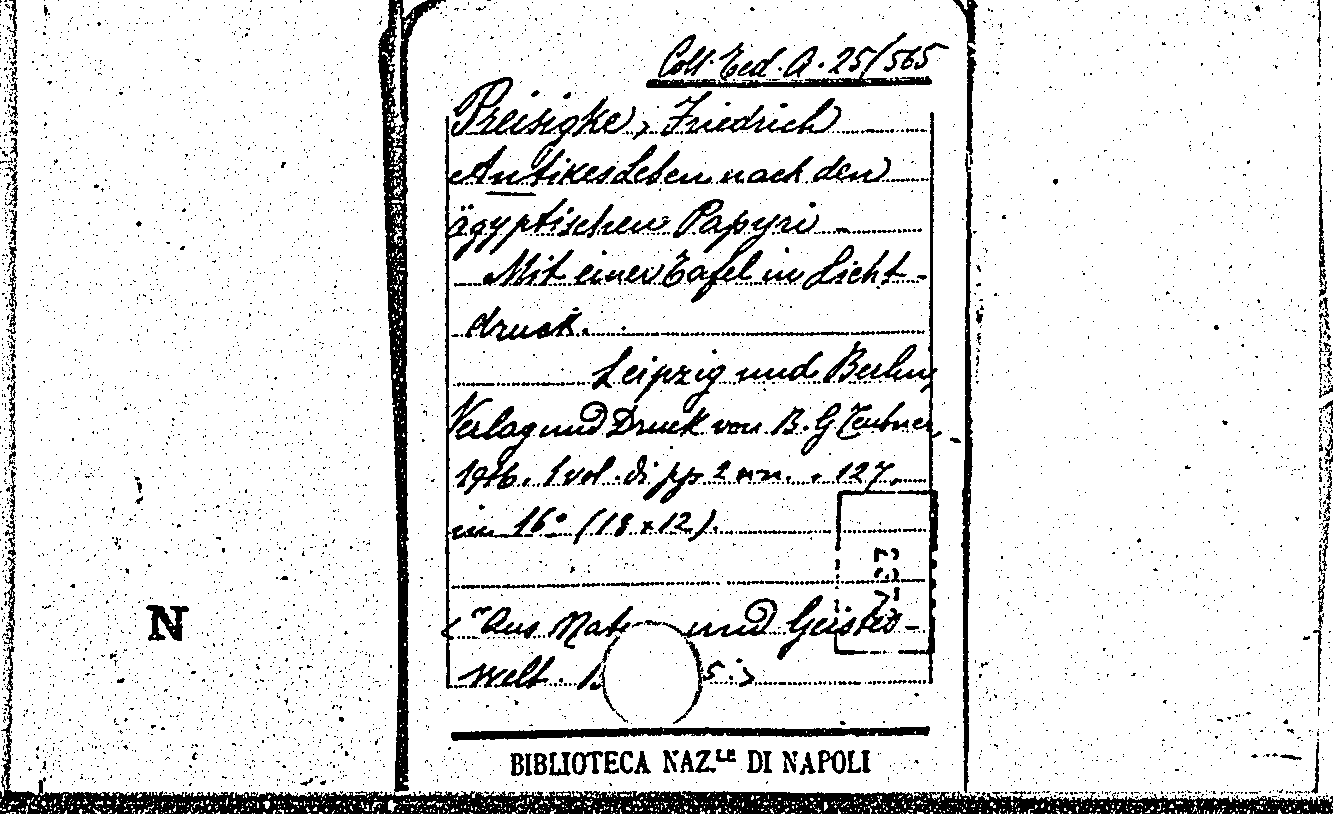 Coll. Ted. A. 25/565
Preisigke, Friedrich
Antikes Leben nach den
ägyptischen Papyri -
Mit einer Tafel in Licht-
druck.
Leipzig und Berlin,
Verlag und Druck von B. G Teubner,
1916. 1 vol. di pp 2 nn. . 127.
in 16° (18 x 12).
< "Aus Nat und Geistes-
welt. B 5. >
N
BIBLIOTECA NAZ.LE DI NAPOLI